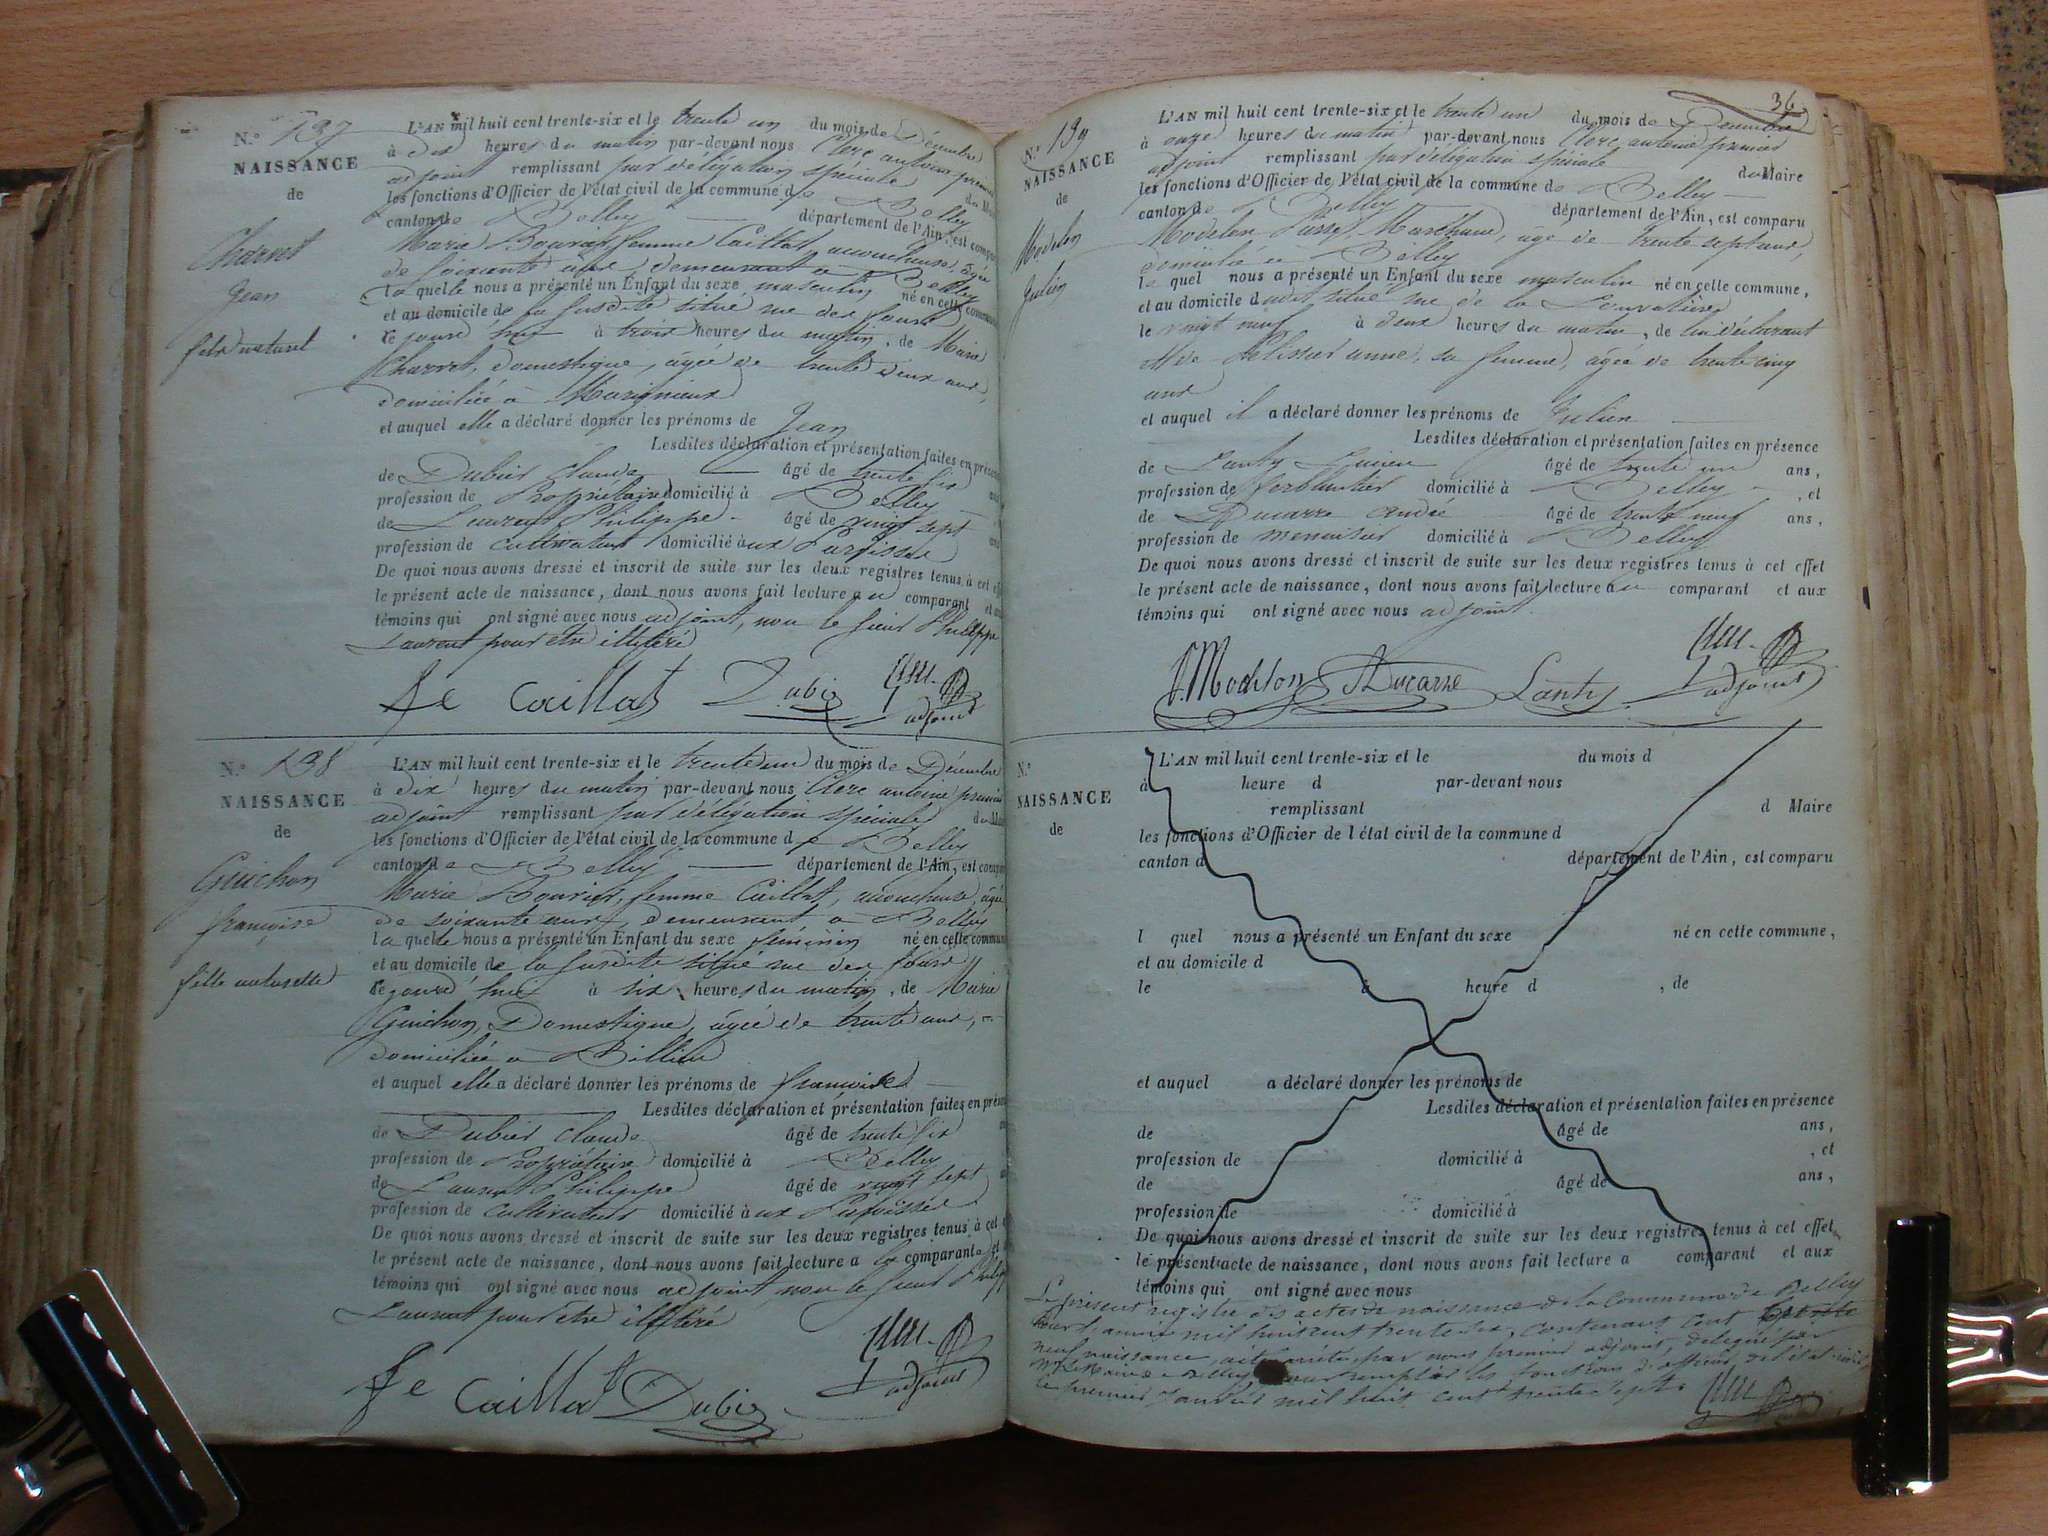 N.o 137
NAISSANCE
de
Charvet
Jean
fils naturel
L'AN mil huit cent trente-six et le trente un du mois de Décembre
à dix heures du matin par-devant nous Clerc antoine premier
adjoint remplissant par délégation spéciale du Maire
les fonctions d'Officier de l'état civil de la commune de Belley
canton de Belley département de l'Ain, est comparu
Marie Bouvier, femme Caillat, accoucheuse, agée
de soixante ans, demeurant à Belley
la quelle nous a présenté un Enfant du sexe masculin né en cette commune
et au domicile de la susdite situé rue des fours
le jourd'hui à trois heures du matin, de Marie
Charvet, domestique, âgée de trente deux ans,
domiciliée à
et auquel elle a déclaré donner les prénoms de Jean
Lesdites déclaration et présentation faites en présence
de Dubis Claude âgé de trente six ans
profession de Propriétaire domicilié à Belley
de Laurent Philippe âgé de vingt sept ans
profession de cultivateur domicilié aux
De quoi nous avons dressé et inscrit de suite sur les deux registres tenus à cet effet
le présent acte de naissance, dont nous avons fait lecture au comparant et aux
témoins qui ont signé avec nous adjoint, non le sieur Philippe
Laurent pour être illitéré
fe Caillat Dubis Clerc
adjoint
N.o 138
NAISSANCE
de
Guichon
françoise
fille naturelle
L'AN mil huit cent trente-six et le trente un du mois de Décembre
à dix heures du matin par-devant nous Clerc antoine premier
adjoint remplissant par délégation spéciale du Maire
les fonctions d'Officier de l'état civil de la commune de Belley
canton de Belley département de l'Ain, est comparu
Marie Bouvier, femme Caillat, accoucheuse, âgée
de soixante ans, demeurant à Belley
la quelle nous a présenté un Enfant du sexe féminin né en cette commune
et au domicile de la susdite situé rue des fours
le jourd'hui à six heures du matin, de Marie
Guichon, Domestique, âgée de trente ans,
domiciliée à Billieu
et auquel elle a déclaré donner les prénoms de françoise
Lesdites déclaration et présentation faites en présence
de Dubis Claude âgé de trente six
profession de Propriétaire domicilié à Belley
de Laurent Philippe âgé de vingt sept
profession de cultivateur domicilié aux
De quoi nous avons dressé et inscrit de suite sur les deux registres tenus à cet
le présent acte de naissance, dont nous avons fait lecture a la comparante et
témoins qui ont signé avec nous adjoint, non le sieur Philippe
Laurent pour être illitéré
fe Caillat Dubis Clerc
adjoint
36
N.o 139
NAISSANCE
de
Modelon
Julien
L'AN mil huit cent trente-six et le trente un du mois de Décembre
à onze heures du matin par-devant nous Clerc, antoine premier
adjoint remplissant par délégation spéciale du Maire
les fonctions d'Officier de l'état civil de la commune de Belley
canton de Belley département de l'Ain, est comparu
Modelon, Marchand, âgé de trente sept ans,
domicilié à Belley
le quel nous a présenté un Enfant du sexe masculin né en cette commune,
et au domicile dudit situé rue de la
le vingt neuf à deux heures du matin, de lui déclarant
et de Pelissier anne, sa femme, âgée de trente cinq
ans
et auquel il a déclaré donner les prénoms de Julien
Lesdites déclaration et présentation faites en présence
de Lanty âgé de trente un ans,
profession de ferblantier domicilié à Belley, et
de Ducarre andré âgé de trente neuf ans,
profession de menuisier domicilié à Belley
De quoi nous avons dressé et inscrit de suite sur les deux registres tenus à cet effet
le présent acte de naissance, dont nous avons fait lecture au comparant et aux
témoins qui ont signé avec nous adjoint.
Modelon Ducarre Lanty Clerc
adjoint
N.o
NAISSANCE
de
L'AN mil huit cent trente-six et le du mois d
à heure d par-devant nous
remplissant d Maire
les fonctions d'Officier de l'état civil de la commune d
canton d département de l'Ain, est comparu
l quel nous a présenté un Enfant du sexe né en cette commune,
et au domicile d
le à heure d , de
et auquel a déclaré donner les prénoms de
Lesdites déclaration et présentation faites en présence
de âgé de ans,
profession de domicilié à , et
de âgé de ans,
profession de domicilié à
De quoi nous avons dressé et inscrit de suite sur les deux registres tenus à cet effet
le présent acte de naissance, dont nous avons fait lecture a comparant et aux
témoins qui ont signé avec nous
Le présent registre des actes de naissance de la Commune de Belley
pour l'année mil huit cent trente six, contenant cent trente
neuf naissance, a été arrêté par nous premier adjoint, délégué par
Mr le Maire de Belley pour remplir les fonctions d'officier de l'état civil
le premier Janvier mil huit cent trente sept. Clerc